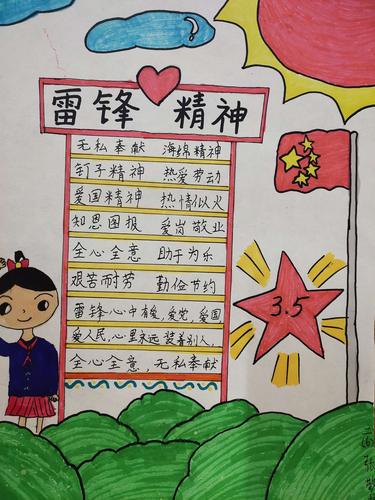 雷锋精神
无私奉献 海绵精神
钉子精神 热爱劳动
爱国精神 热情似火
知恩图报 爱岗敬业
全心全意 助于为乐
艰苦而劳 勤俭节约
雷锋心中有爱,爱党,爱国,
爱人民,心里永远装着别人,
全心全意,无私奉献
3.5